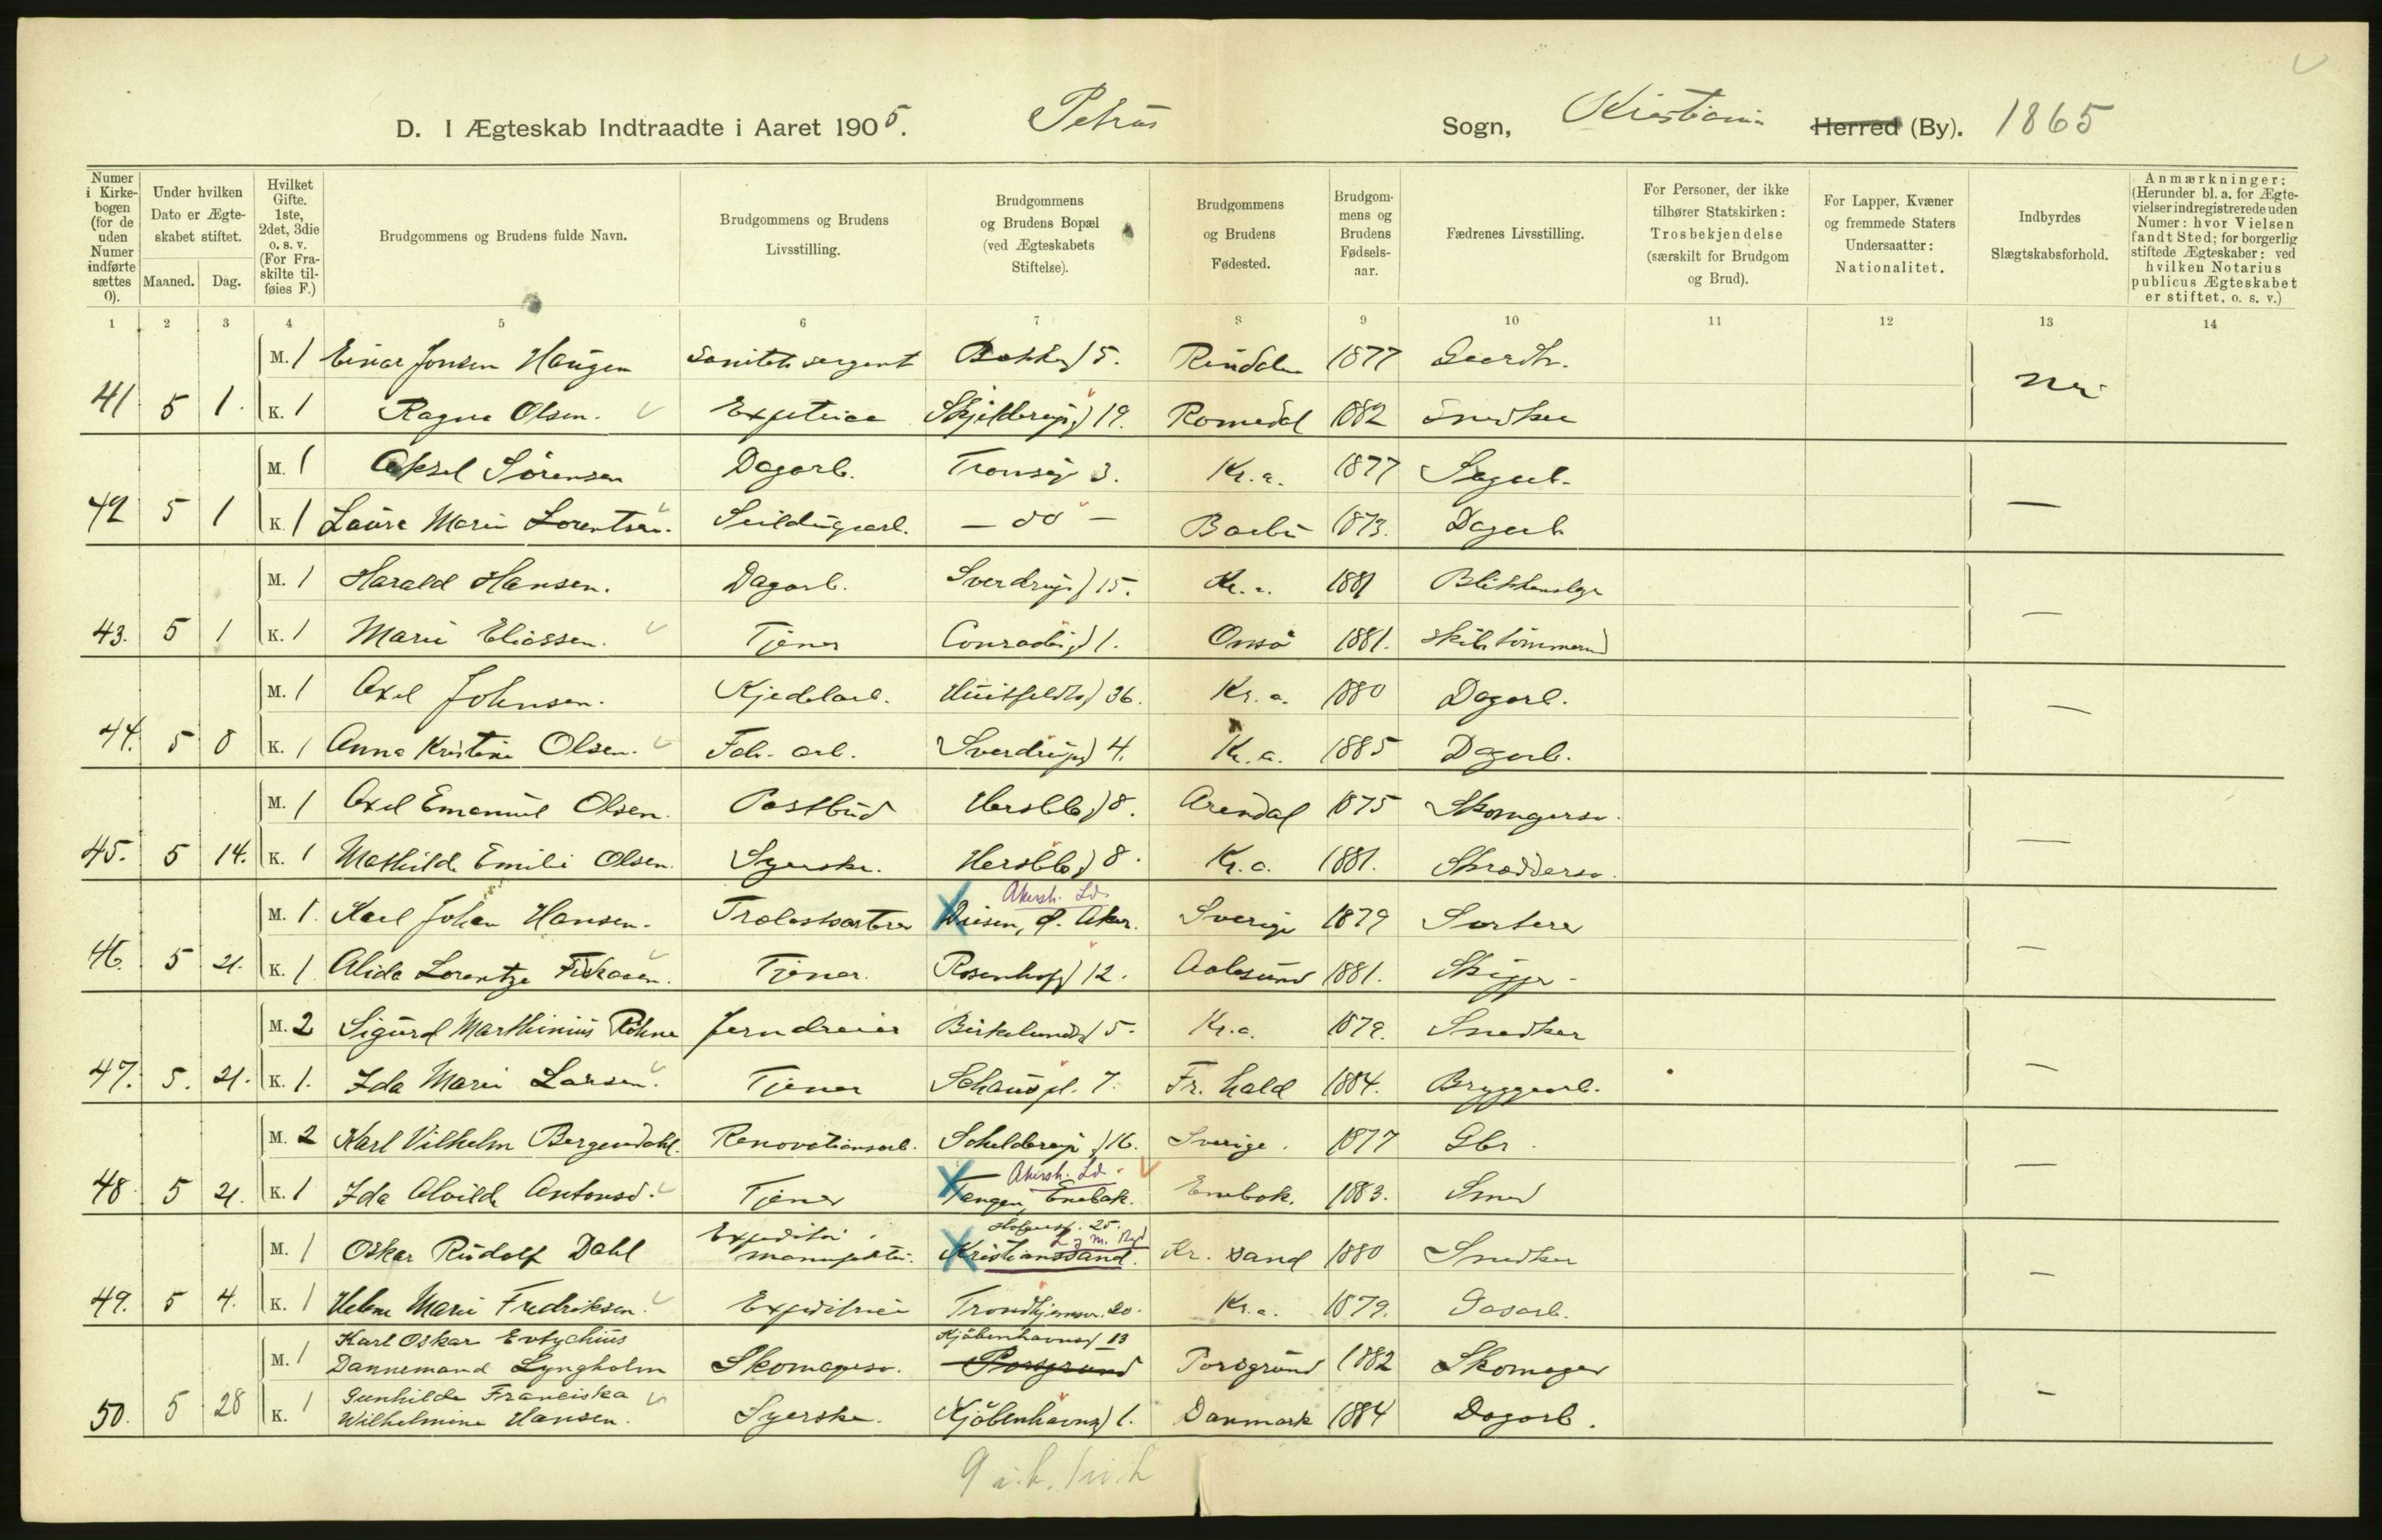 D. I Ægteskab Indtraadte i Aaret 1905. Petrus Sogn, Kristiania Herred (By). 1865
Numer i Kirkebogen (for de uden Numer indførte sættes 0).
Under hvilken Dato er Ægteskabet stiftet.
Maaned. Dag.
Hvilket Gifte. 1ste, 2det, 3die o. s. v. (For Fraskilte tilføies F.)
Brudgommens og Brudens fulde Navn.
Brudgommens og Brudens Livsstilling.
Brudgommens og Brudens Bopæl (ved Ægteskabets Stiftelse).
Brudgommens og Brudens Fødested.
Brudgommens og Brudens Fødselsaar.
Fædrenes Livsstilling.
For Personer, der ikke tilhører Statskirken: Trosbekjendelse (særskilt for Brudgom og Brud).
For Lapper, Kvæner og fremmede Staters Undersaatter: Nationalitet.
Indbyrdes Slægtskabsforhold.
Anmærkninger: (Herunder bl. a. for Ægtevielser indregistrerede uden Numer: hvor Vielsen fandt Sted; for borgerlig stiftede Ægteskaber: ved hvilken Notarius publicus Ægteskabet er stiftet, o. s. v.)
1 2 3 4 5 6 7 8 9 10 11 12 13 14
M. 1 Einar Jonsen Haugen Sanitetssergent 5. Rindalen 1877 Gaardbr.
41 5 1. K. 1 Ragna Olsen. Skjelderups) 19. Romedal 1882 Snedker
M. 1 Aksel Sörensen Dagarb. 3. Kr.a. 1877 Sagarb.
42 5 1 K. 1 Laura Marie Lorentsen. – do – 1873. Dagarb
M. 1 Harald Hansen. Dagarb. Sverdrups) 15. Kr.a. 1881 Blikkenslager
43. 5 1 K. 1 Marie Eliassen. Tjener Conradis) 1. Onsö 1881. Skibstömmermd
M. 1 Axel Johnsen. Kjedelarb. Huitfeldts) 36. Kr.a. 1880 Dagarb.
44. 5 8 K. 1 Anna Kristine Olsen. Fab. arb. Sverdrups) 4. Kr.a. 1885 Dagarb.
M. 1 Axel Emanuel Olsen. Postbud Herslebs) 8. Arendal 1875 Skomagersv.
45. 5 14. K. 1 Mathilde Emilie Olsen. Syerske. Herslebs) 8. Kr.a. 1881. Skræddersv.
Akersh. Ld.
M. 1. Karl Johan Hansen. Trælastsorterer Ö. Aker. Sverige 1879 Sorterer
46. 5 21. K. 1 Alida Lorentze Tjener. Rosenhofg) 12. Aalesund 1881. Skipper
M. 2 Sigurd Marthinius Jerndreier Birkelunds) 5. Kr.a. 1879. Snedker
47. 5. 21. K. 1. Ida Marie Larsen. Tjener Schaus pl. 7. Fr.hald 1884. Bryggearb.
M. 2 Karl Vilhelm Bergendahl. Renovationsarb. Schelderups) 16. Sverige. 1877 Gbr.
Akersh. Ld.
48 5 21. K. 1 Ida Alvilde Antonsd. Tjener Tangen, Enebak. Enebak. 1883. Smed
25.
M. 1 Oskar Rudolf Dahl Expeditör i manufaktur. Kristianssand. Kr.sand 1880 Snedker
49. 5 4. K. 1 Helene Marie Fredriksen. Expeditrice Trondhjemsv. 20. Kr.a. 1879. Gasarb.
Karl Oskar Evtychius Kjöbenhavnsg 13
M. 1 Dannemand Lyngholm Skomagersv. Porsgrund Porsgrund 1882 Skomager
Gunhilde Franciska
50. 5 28 K. 1 Wilhelmine Hansen. Syerske. Kjöbenhavnsg) 1. Danmark 1884 Dagarb.